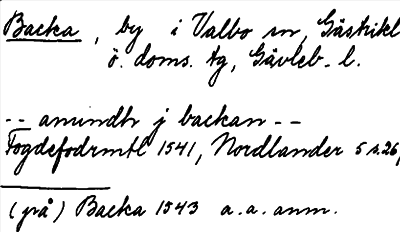 Backa, by i Valbo sn, Gästrikl
ö. doms. tg, Gävleb. l.
-- amundh j backan --
Fogdefodrmtl 1541, Nordlander 5 s. 26,
(på) Backa 1543 a.a. anm.